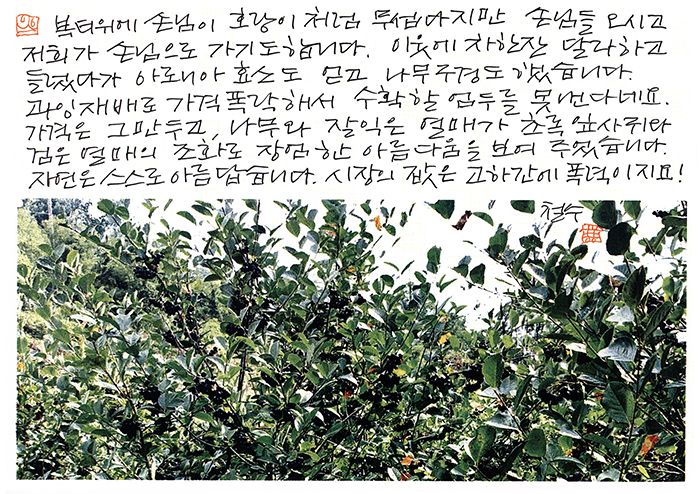 복더위에 손님이 호랑이처럼 무섭다지만 손님들 오시고
저희가 손님으로 가기도 합니다. 이웃에 차한잔 달라하고
들렸다가 아로니아 효소도 얻고 나무구경도 했습니다.
과잉재배로 가격폭락해서 수확할 엄두를 못낸다네요.
가격은 그만두고, 나무와 잘익은 열매가 초록잎사귀와
검은 열매의 조화로 장엄한 아름다움을 보여 주었습니다.
자연은 스스로 아름답습니다. 시장의 값은 고하간에 폭력이지요!
철수